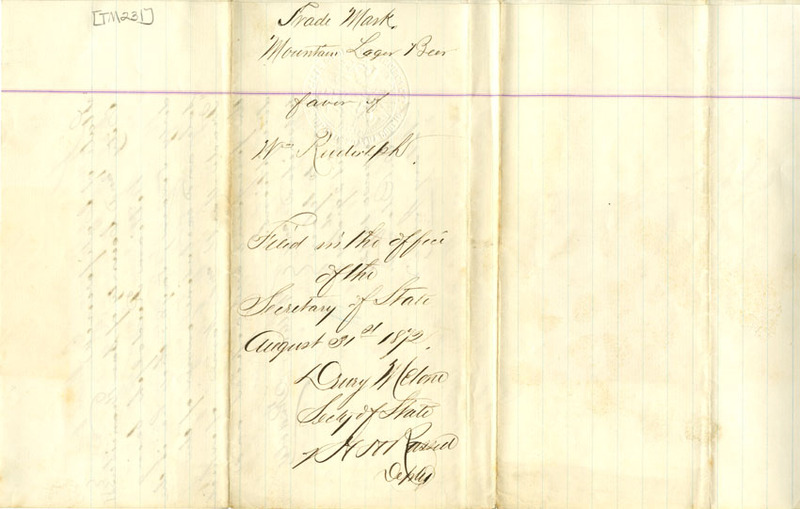 [TM231]
Trade Mark.
Mountain Lager Beer
favor of
Wm Rudolph.
Filed in the office
of the
Secretary of State
August 31st 1872.
Drury Melone
Secy of State
Deputy